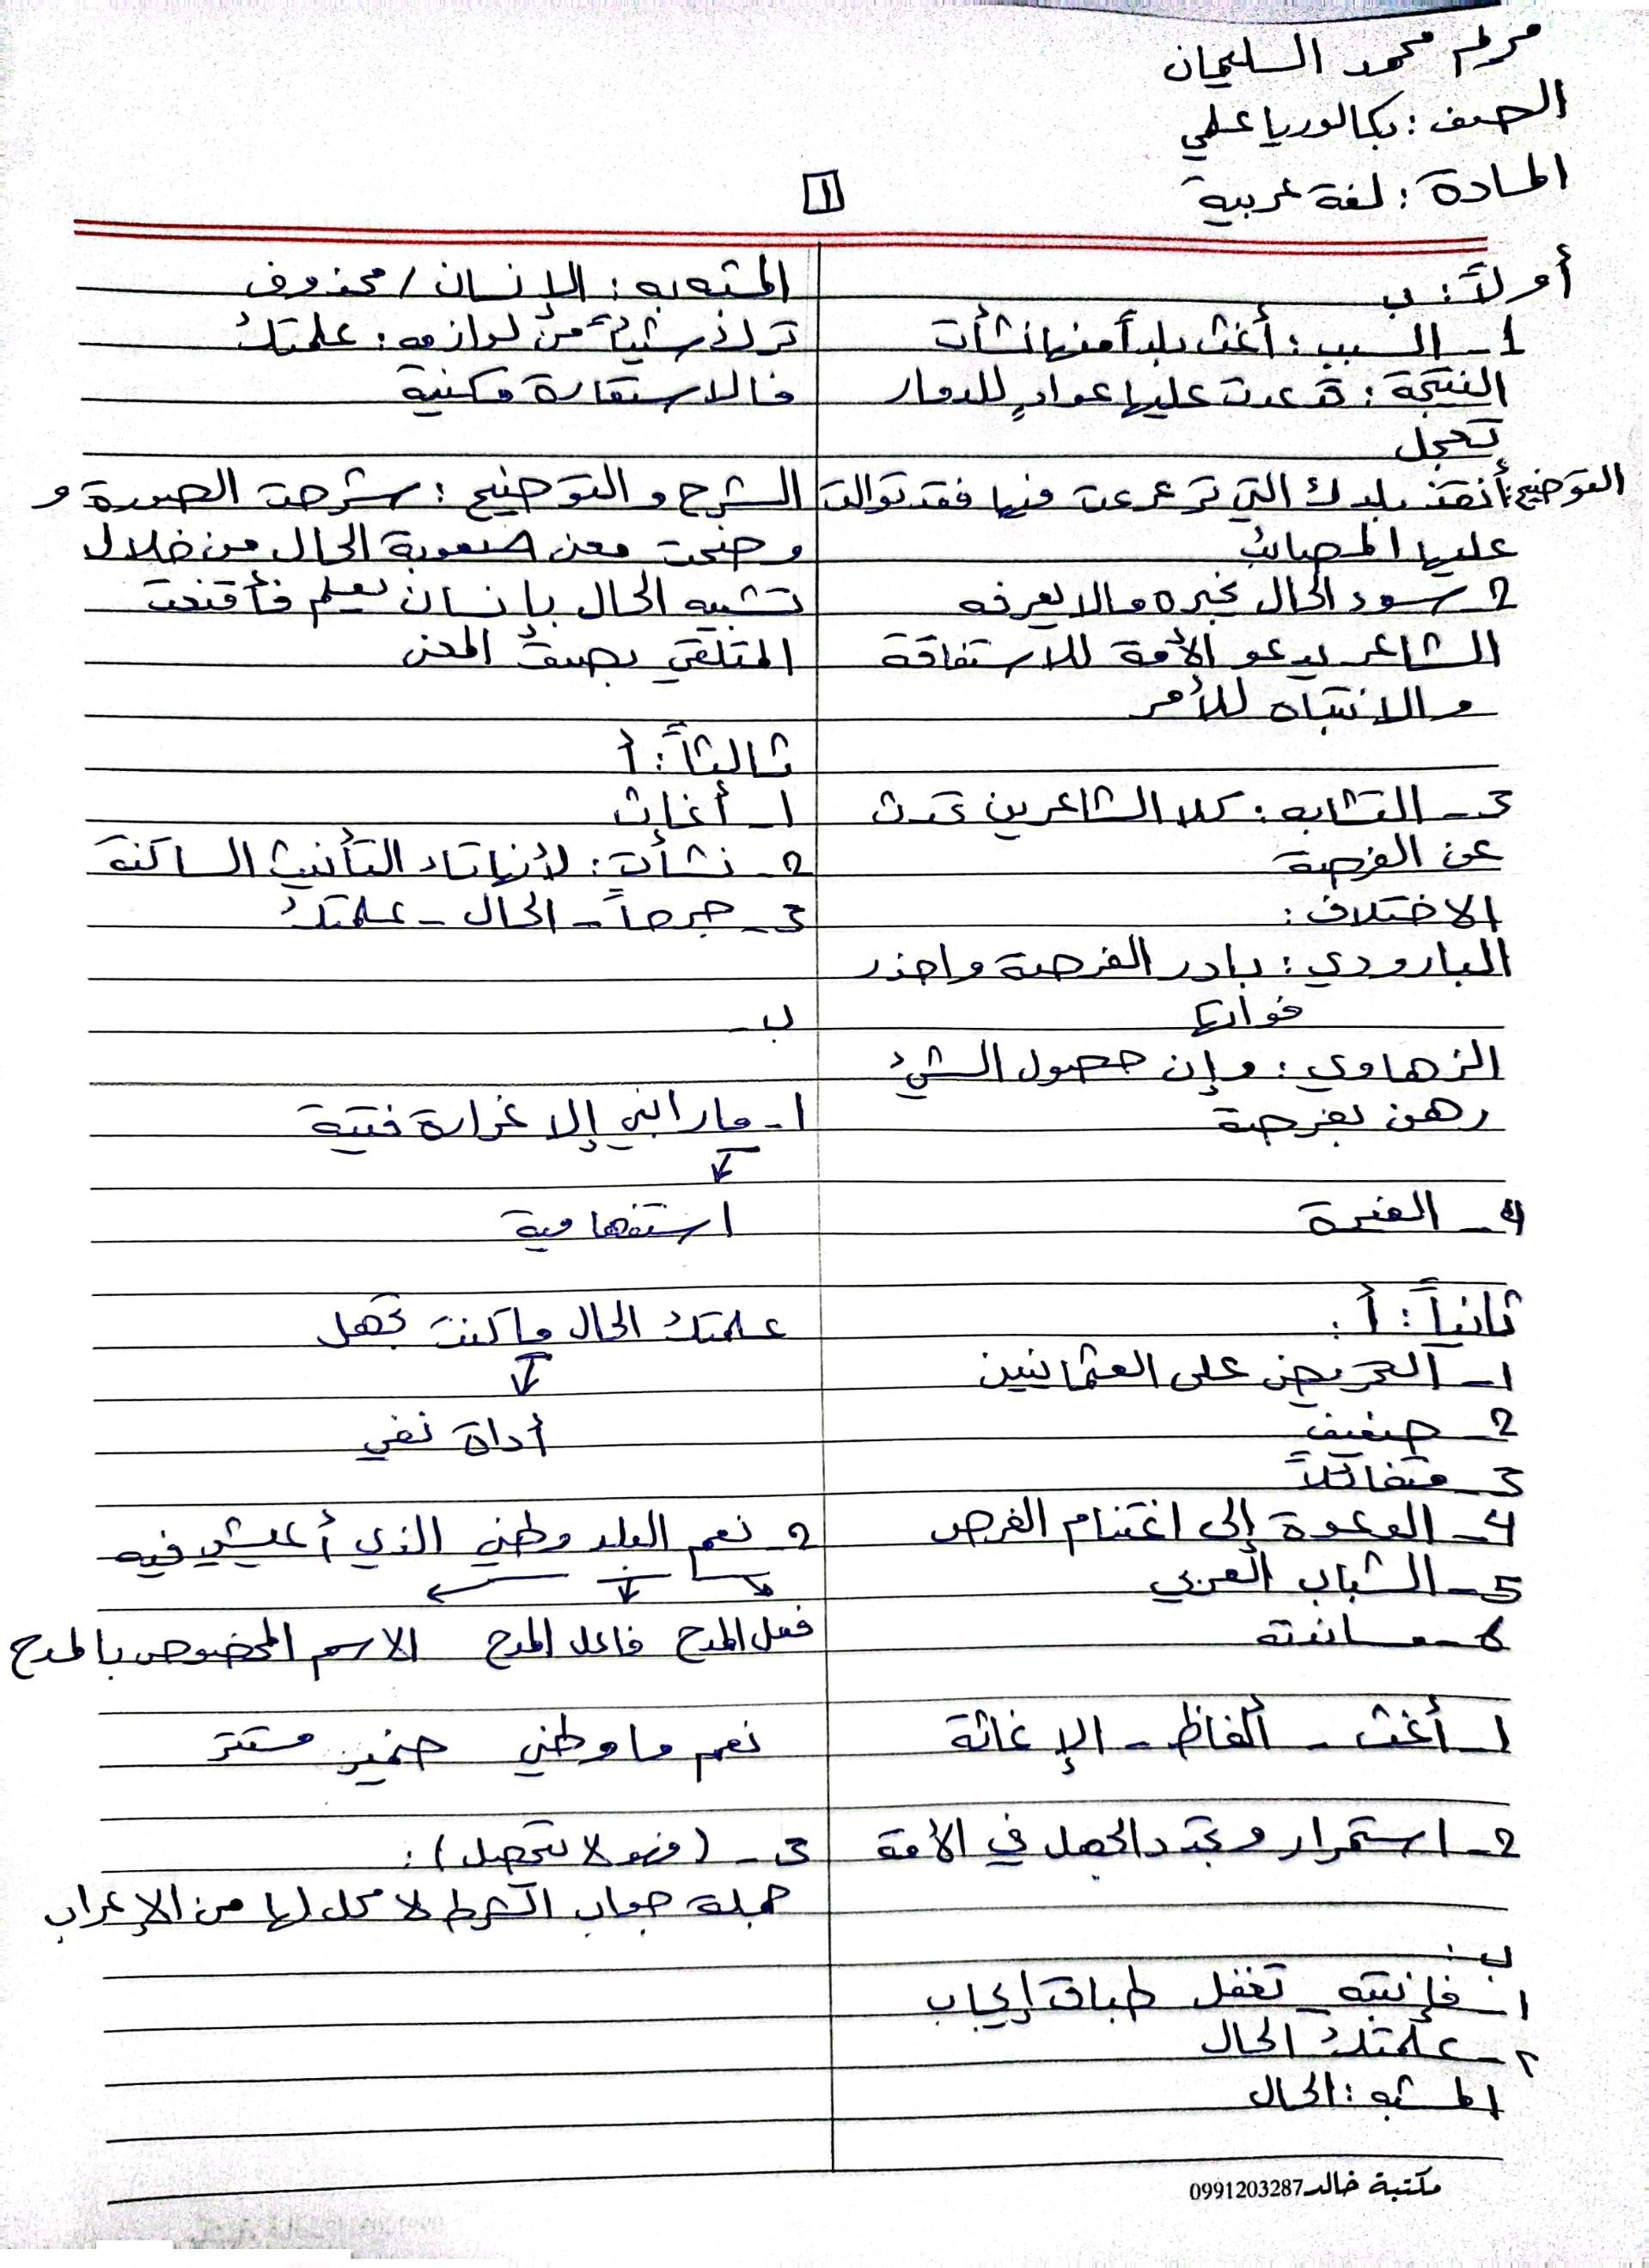 مريم محمد السليمان
الصف: بكالوريا علمي
المادة: لغة عربية
1
أولاً: ب
1- السبب: أغث بلداً منها نشأت
النتيجة: قد عدت عليها عوادٍ للدمار
تعجل
التوضيح: أنقذ بلدك التي ترعرعت فيها فقد توالت
عليها المصائب
2- سود الحال
الشاعر يدعو الأمة للاستفاقة
والانتباه للأمر
3- التشابه: كلا الشاعرين تحدث
عن الفرصة
الاختلاف:
البارودي: بادر الفرصة واحذر
فواتها
الزهاوي: وإن حصول الشيء
رهن بفرصة
4- الغيرة
ثانياً: أ.
1- التحريض على العثمانيين
2- ضعيف
3- متفائلاً
4- الدعوة إلى اغتنام الفرص
5- الشباب العربي
6- ساندته
1- أغث - ألفاظ - الإغاثة
2- استمرار وتجدد الجهل في الأمة
ب-
1- فانتبه - تغفل طباق إيجاب
٢- علمتك الحال
المشبه: الحال
المشبه به: الإنسان / محذوف
ترك شيئاً من لوازمه: علمتك
فالاستعارة مكنية
الشرح والتوضيح: شرحت الصورة و
وضحت معنى صعوبة الحال من خلال
تشبيه الحال بإنسان يعلم فأقنعت
المتلقي بصدق المعنى
ثالثاً: أ
1- أغاث
2- نشأت: لأنها تاء التأنيث الساكنة
3- جرحاً - الحال - علمتك
ب-
1- ما رابني إلا غرارة فتية
استفهامية
علمتك الحال ما كنت تجهل
أداة نفي
2- نعم البلد وطني الذي أعيش فيه
فعل المدح فاعل المدح الاسم المخصوص بالمدح
نعم ما وطني ضمير مستتر
3- (فهو لا يتحصل):
جملة جواب الشرط لا محل لها من الإعراب
مكتبة خالد 0991203287